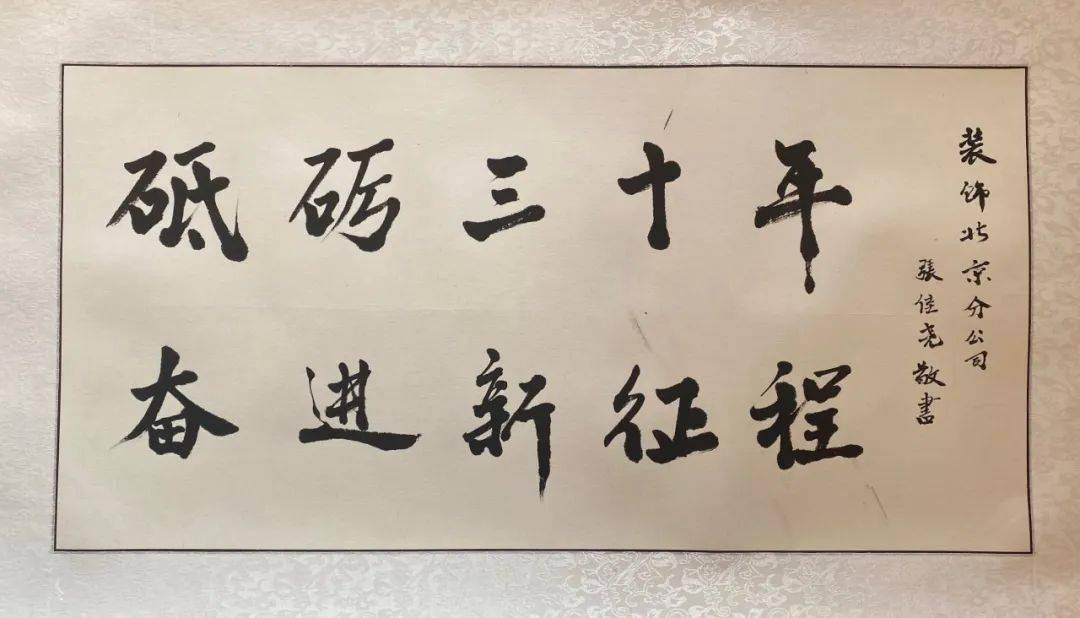 砥砺三十年
奋进新征程
装饰北京分公司
張佳尧敬書